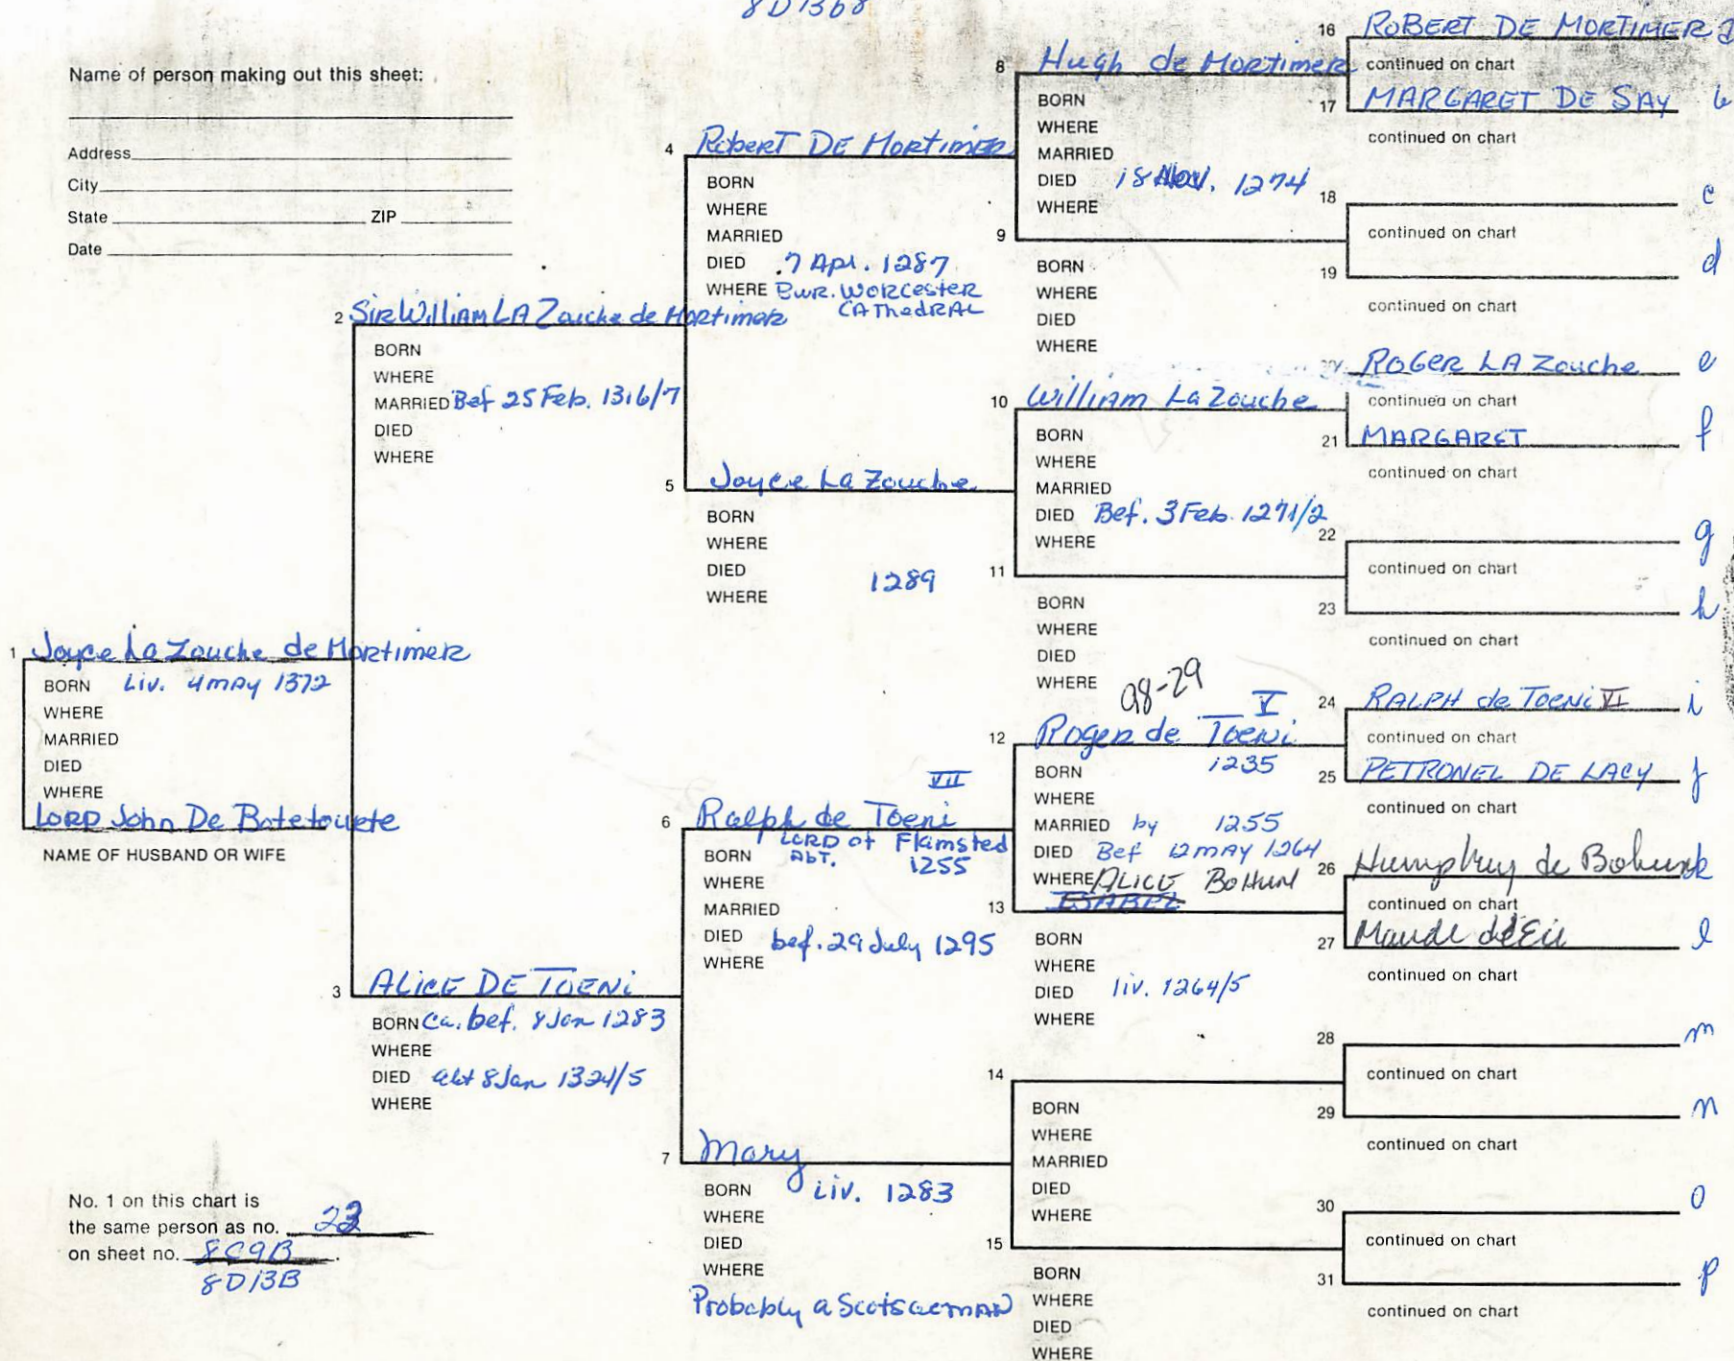 8D13B8
Name of person making out this sheet:
Address
City
State ZIP
Date
1 Joyce La Zouche de Mortimer
BORN Liv. 4 may 1372
WHERE
MARRIED
DIED
WHERE
LORD John De Botetourte
NAME OF HUSBAND OR WIFE
2 Sir William LA Zouche de Mortimer
BORN
WHERE
MARRIED Bef 25 Feb. 1316/7
DIED
WHERE
3 ALICE DE TOENi
BORN Ca. bef. 8 Jan 1283
WHERE
DIED abt 8 Jan 1324/5
WHERE
4 Robert DE Mortimer
BORN
WHERE
MARRIED
DIED 7 Apr. 1287
WHERE Bur. Worcester
CAThedRAL
5 Joyce La Zouche
BORN
WHERE
DIED 1289
WHERE
VII
6 Ralph de Toeni
LORD of Flamsted
BORN Abt. 1255
WHERE
MARRIED
DIED bef. 29 July 1295
WHERE
7 Mary
BORN Liv. 1283
WHERE
DIED
WHERE
Probably a Scotswoman
8 Hugh de Mortimer
BORN
WHERE
MARRIED
DIED 18 Nov. 1274
WHERE
9
BORN
WHERE
DIED
WHERE
10 William La Zouche
BORN
WHERE
MARRIED
DIED Bef. 3 Feb. 1271/2
WHERE
11
BORN
WHERE
DIED
WHERE
98-29
V
12 Roger de Toeni
BORN 1235
WHERE
MARRIED by 1255
DIED Bef 12 may 1264
WHERE ALICE BOHUN
13 ISABEL
BORN
WHERE
DIED liv. 1264/5
WHERE
14
BORN
WHERE
MARRIED
DIED
WHERE
15
BORN
WHERE
DIED
WHERE
16 ROBERT DE MORTIMER
continued on chart
17 MARGARET DE SAY b
continued on chart
18 c
continued on chart
19 d
continued on chart
ROGER LA Zouche e
continued on chart
21 MARGARET f
continued on chart
22 g
continued on chart
23 h
continued on chart
24 RALPH de TOENi VI i
continued on chart
25 PETRONEL DE LACY j
continued on chart
26 Humphrey de Bohun k
continued on chart
27 Maude d'Eu l
continued on chart
28 m
continued on chart
29 n
continued on chart
30 o
continued on chart
31 p
continued on chart
No. 1 on this chart is
the same person as no. 23
on sheet no. 8C9B.
8D13B